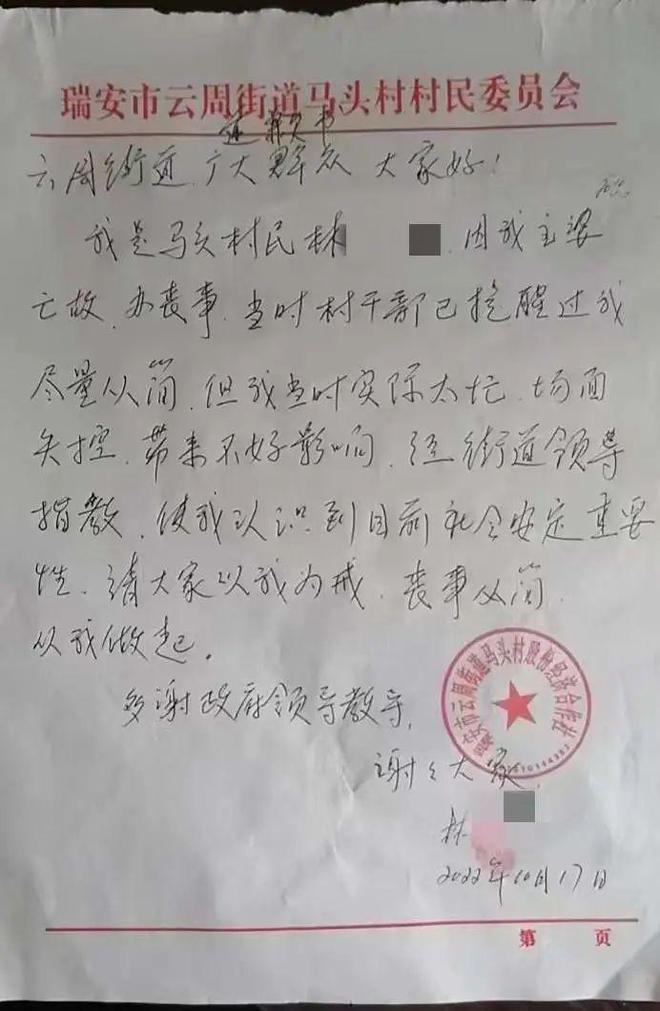 瑞安市云周街道马头村村民委员会
道歉书
云周街道广大群众 大家好!
我是马头村民林 , 因我主婆
亡故、办丧事、当时村干部已提醒过我
尽量从简、但我当时实际太忙、场面
失控、带来不好影响、经街道领导
指教、使我认识到目前社会安定重要
性、请大家以我为戒、丧事从简、
从我做起。
多谢政府领导教导,
谢谢大家
瑞安市云周街道马头村股份经济合作社
林
2022年10月17日
第 页